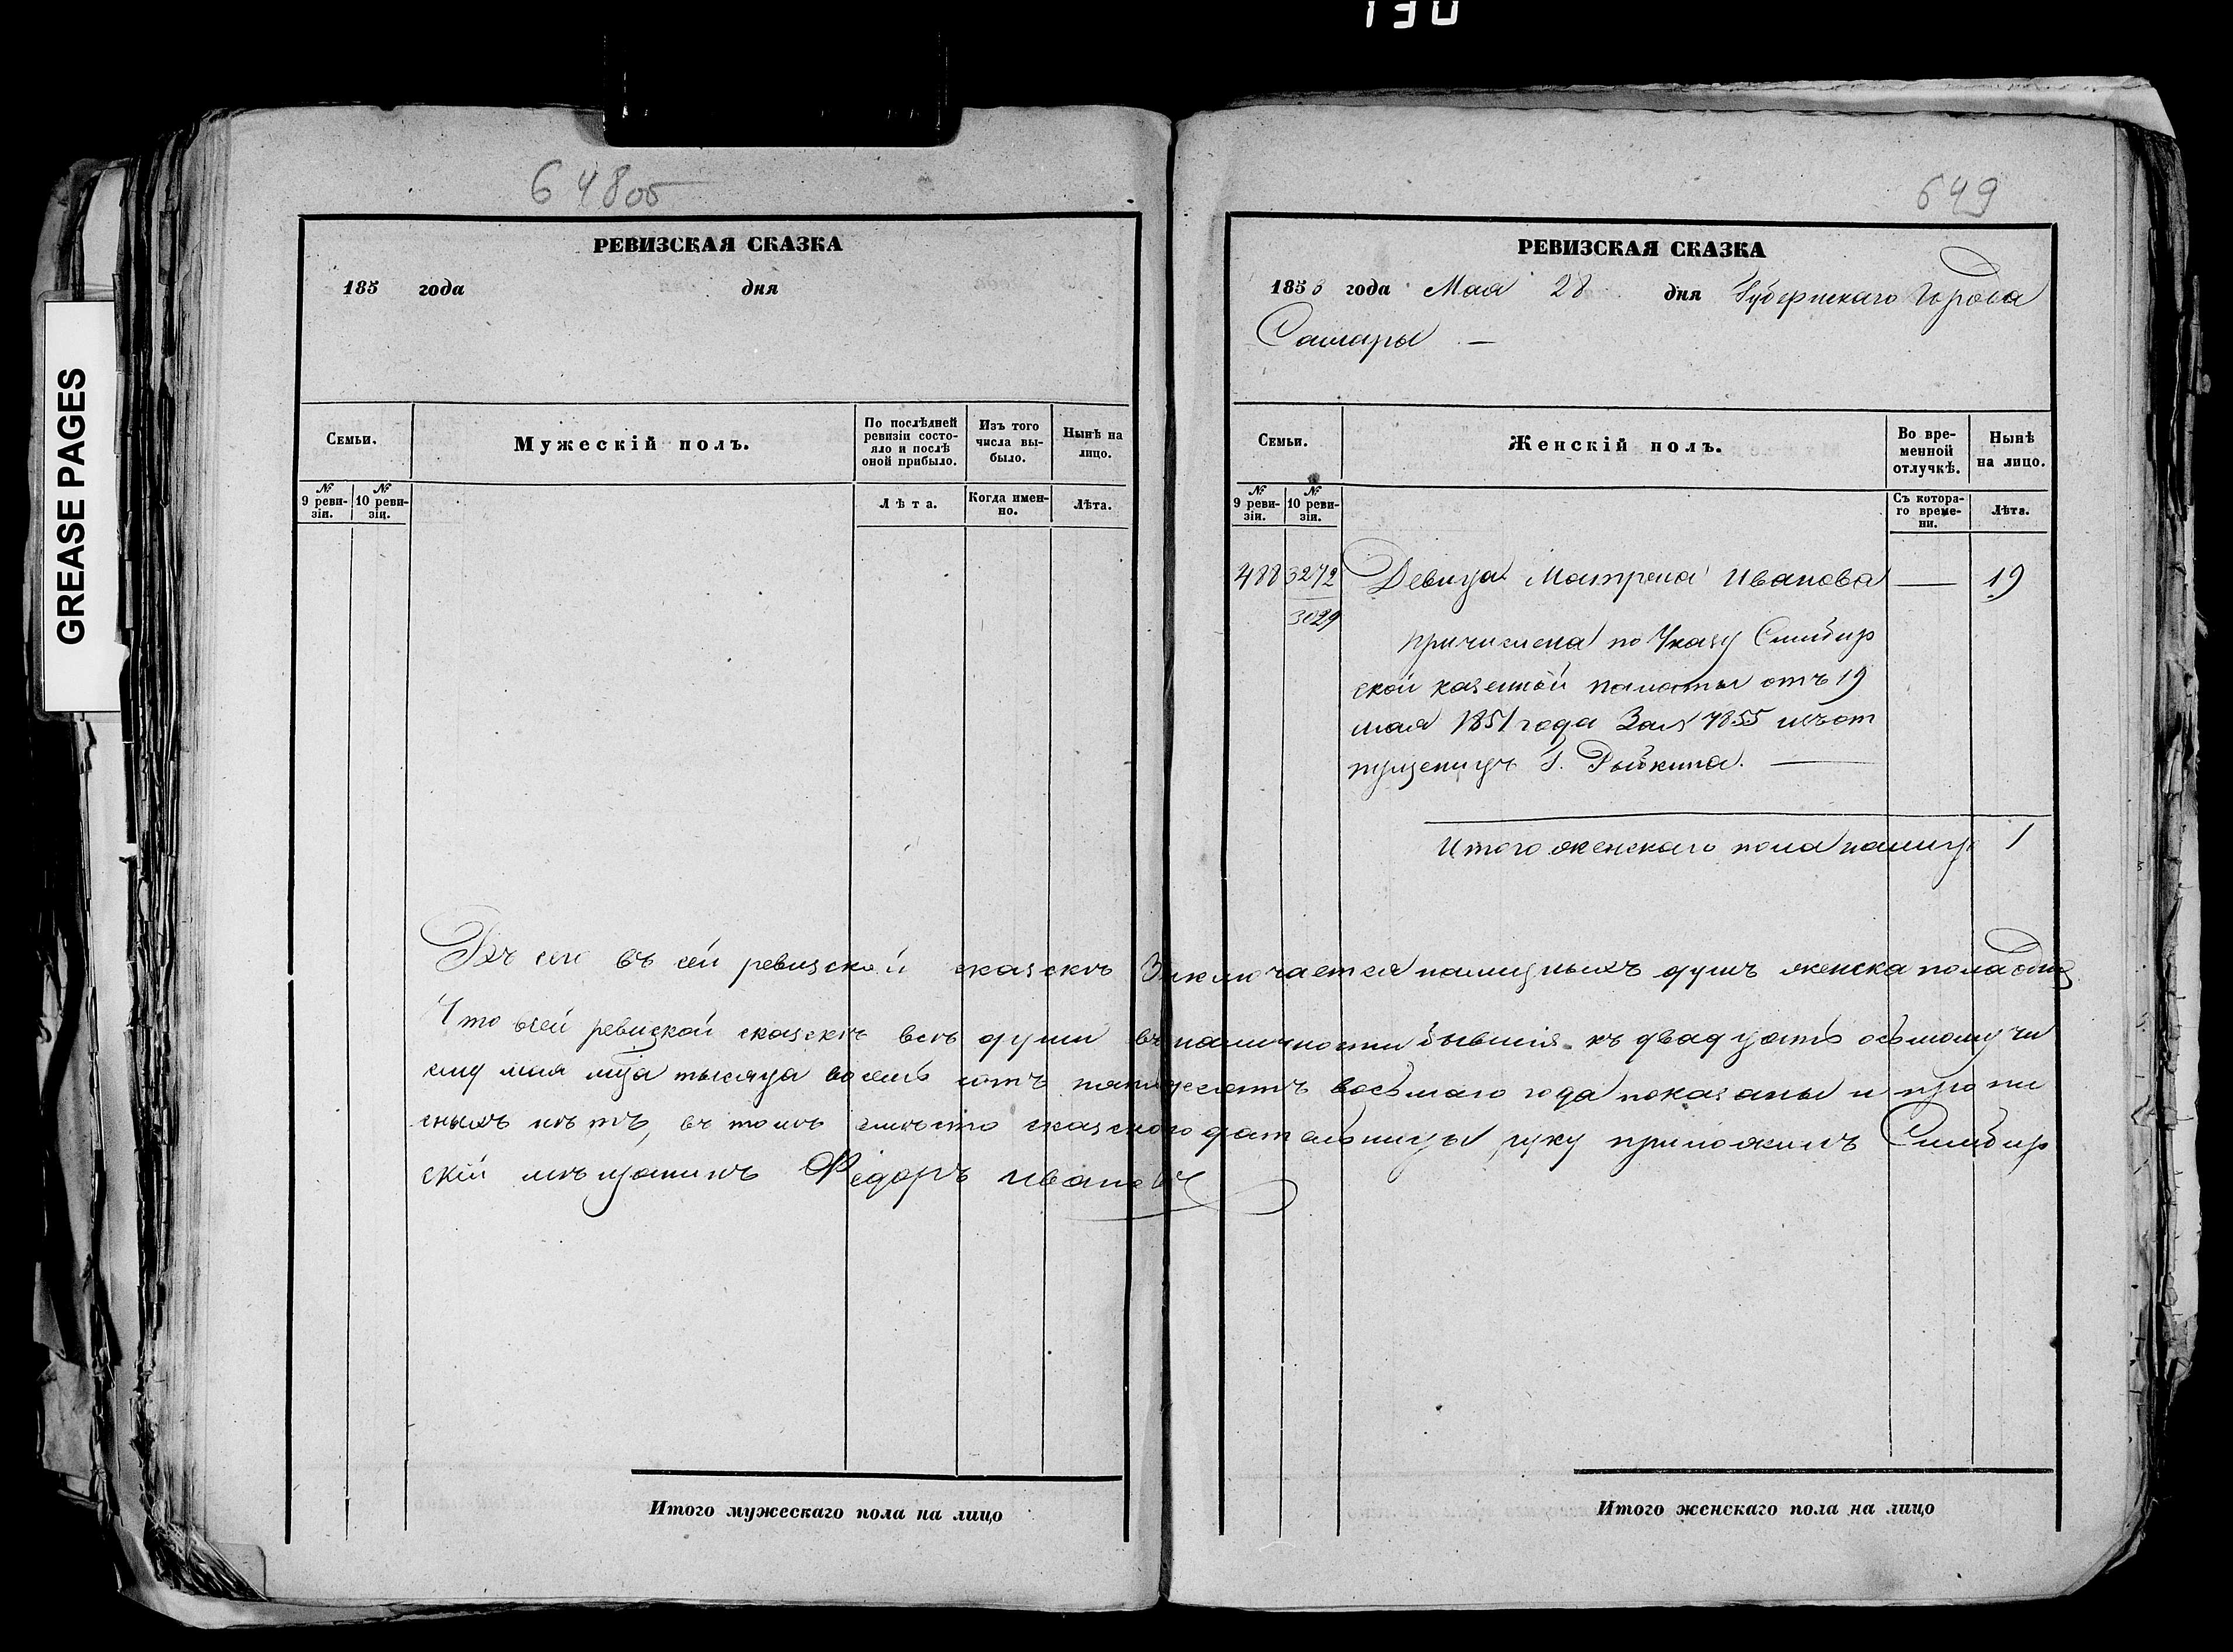 130
GREASE PAGES
648об
РЕВИЗСКАЯ СКАЗКА
185 года дня
Семьи.
Мужескій полъ.
По послѣдней ревизіи состояло и послѣ оной прибыло.
Изъ того числа выбыло.
Нынѣ на лицо.
№ 9 ревизіи.
№ 10 ревизіи.
Лѣта.
Когда именно.
Лѣта.
649
РЕВИЗСКАЯ СКАЗКА
1858 года Мая 28 дня Губернскаго Города
Самары —
Семьи.
Женскій полъ.
Во временной отлучкѣ.
Нынѣ на лицо.
№ 9 ревизіи.
№ 10 ревизіи.
Съ котораго времени.
Лѣта.
488 3272 Девица Матрена Иванова — 19
3029
причислена по Указу Симбир
ской казенной палаты отъ 19
мая 1851 года За № 7855 изъ от
пущеницъ Г.
Итого женскаго пола налицо 1
въ сей ревизской сказкѣ Заключается наличныхъ душъ женска пола одна
Что всей ревизкой сказкѣ всѣ души въ наличности бывшія къ двадцать осьмому чи
слу мая мца тысяча восемь сотъ пятидесятъ восьмаго года показаны и пропи
сныхъ нѣтъ, въ томъ вместо сказкоподательницы руку приложилъ Симбир
скій мѣщанинъ Федоръ Ивановъ
Итого мужескаго пола на лицо
Итого женскаго пола на лицо